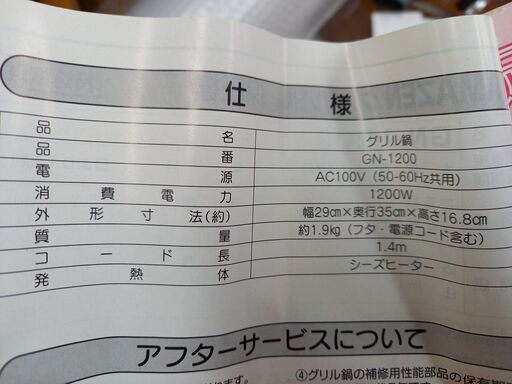 仕様
品名 グリル鍋
品番 GN-1200
電源 AC100V（50-60Hz共用）
消費電力 1200W
外形寸法(約) 幅29cm×奥行35cm×高さ16.8cm
質量 約1.9kg（フタ・電源コード含む）
コード長 1.4m
発熱体 シーズヒーター
アフターサービスについて
④グリル鍋の補修用性能部品の保有期